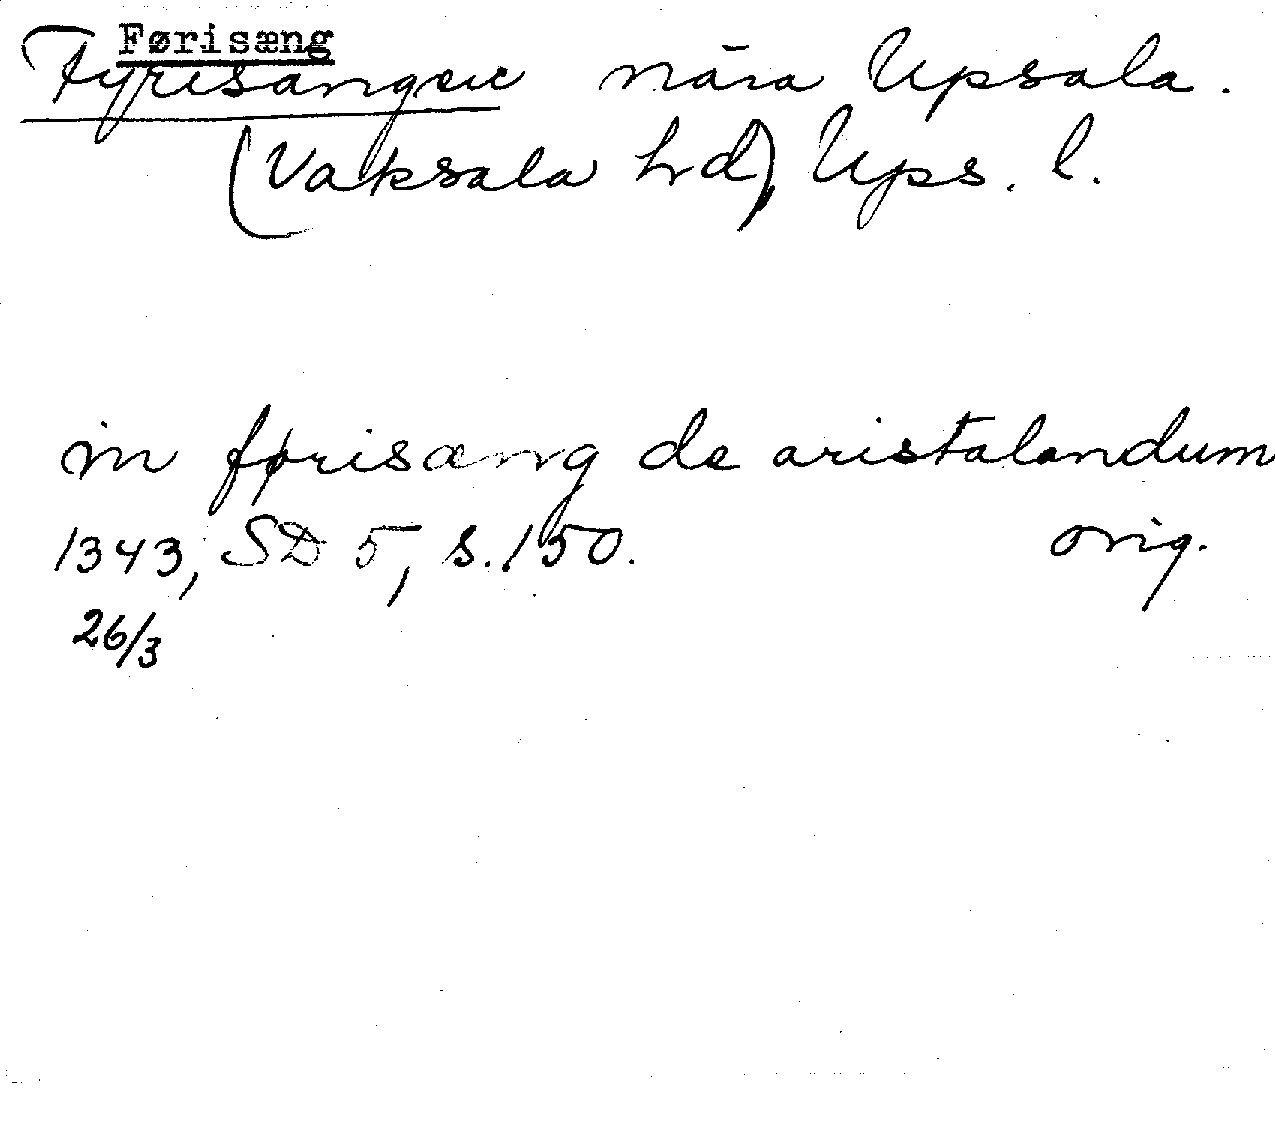 Førisæng
Fyrisängen nära Upsala.
(Vaksala hd) Ups. l.
in førisæng de aristalandum
1343, SD 5, s. 150. orig.
26/3